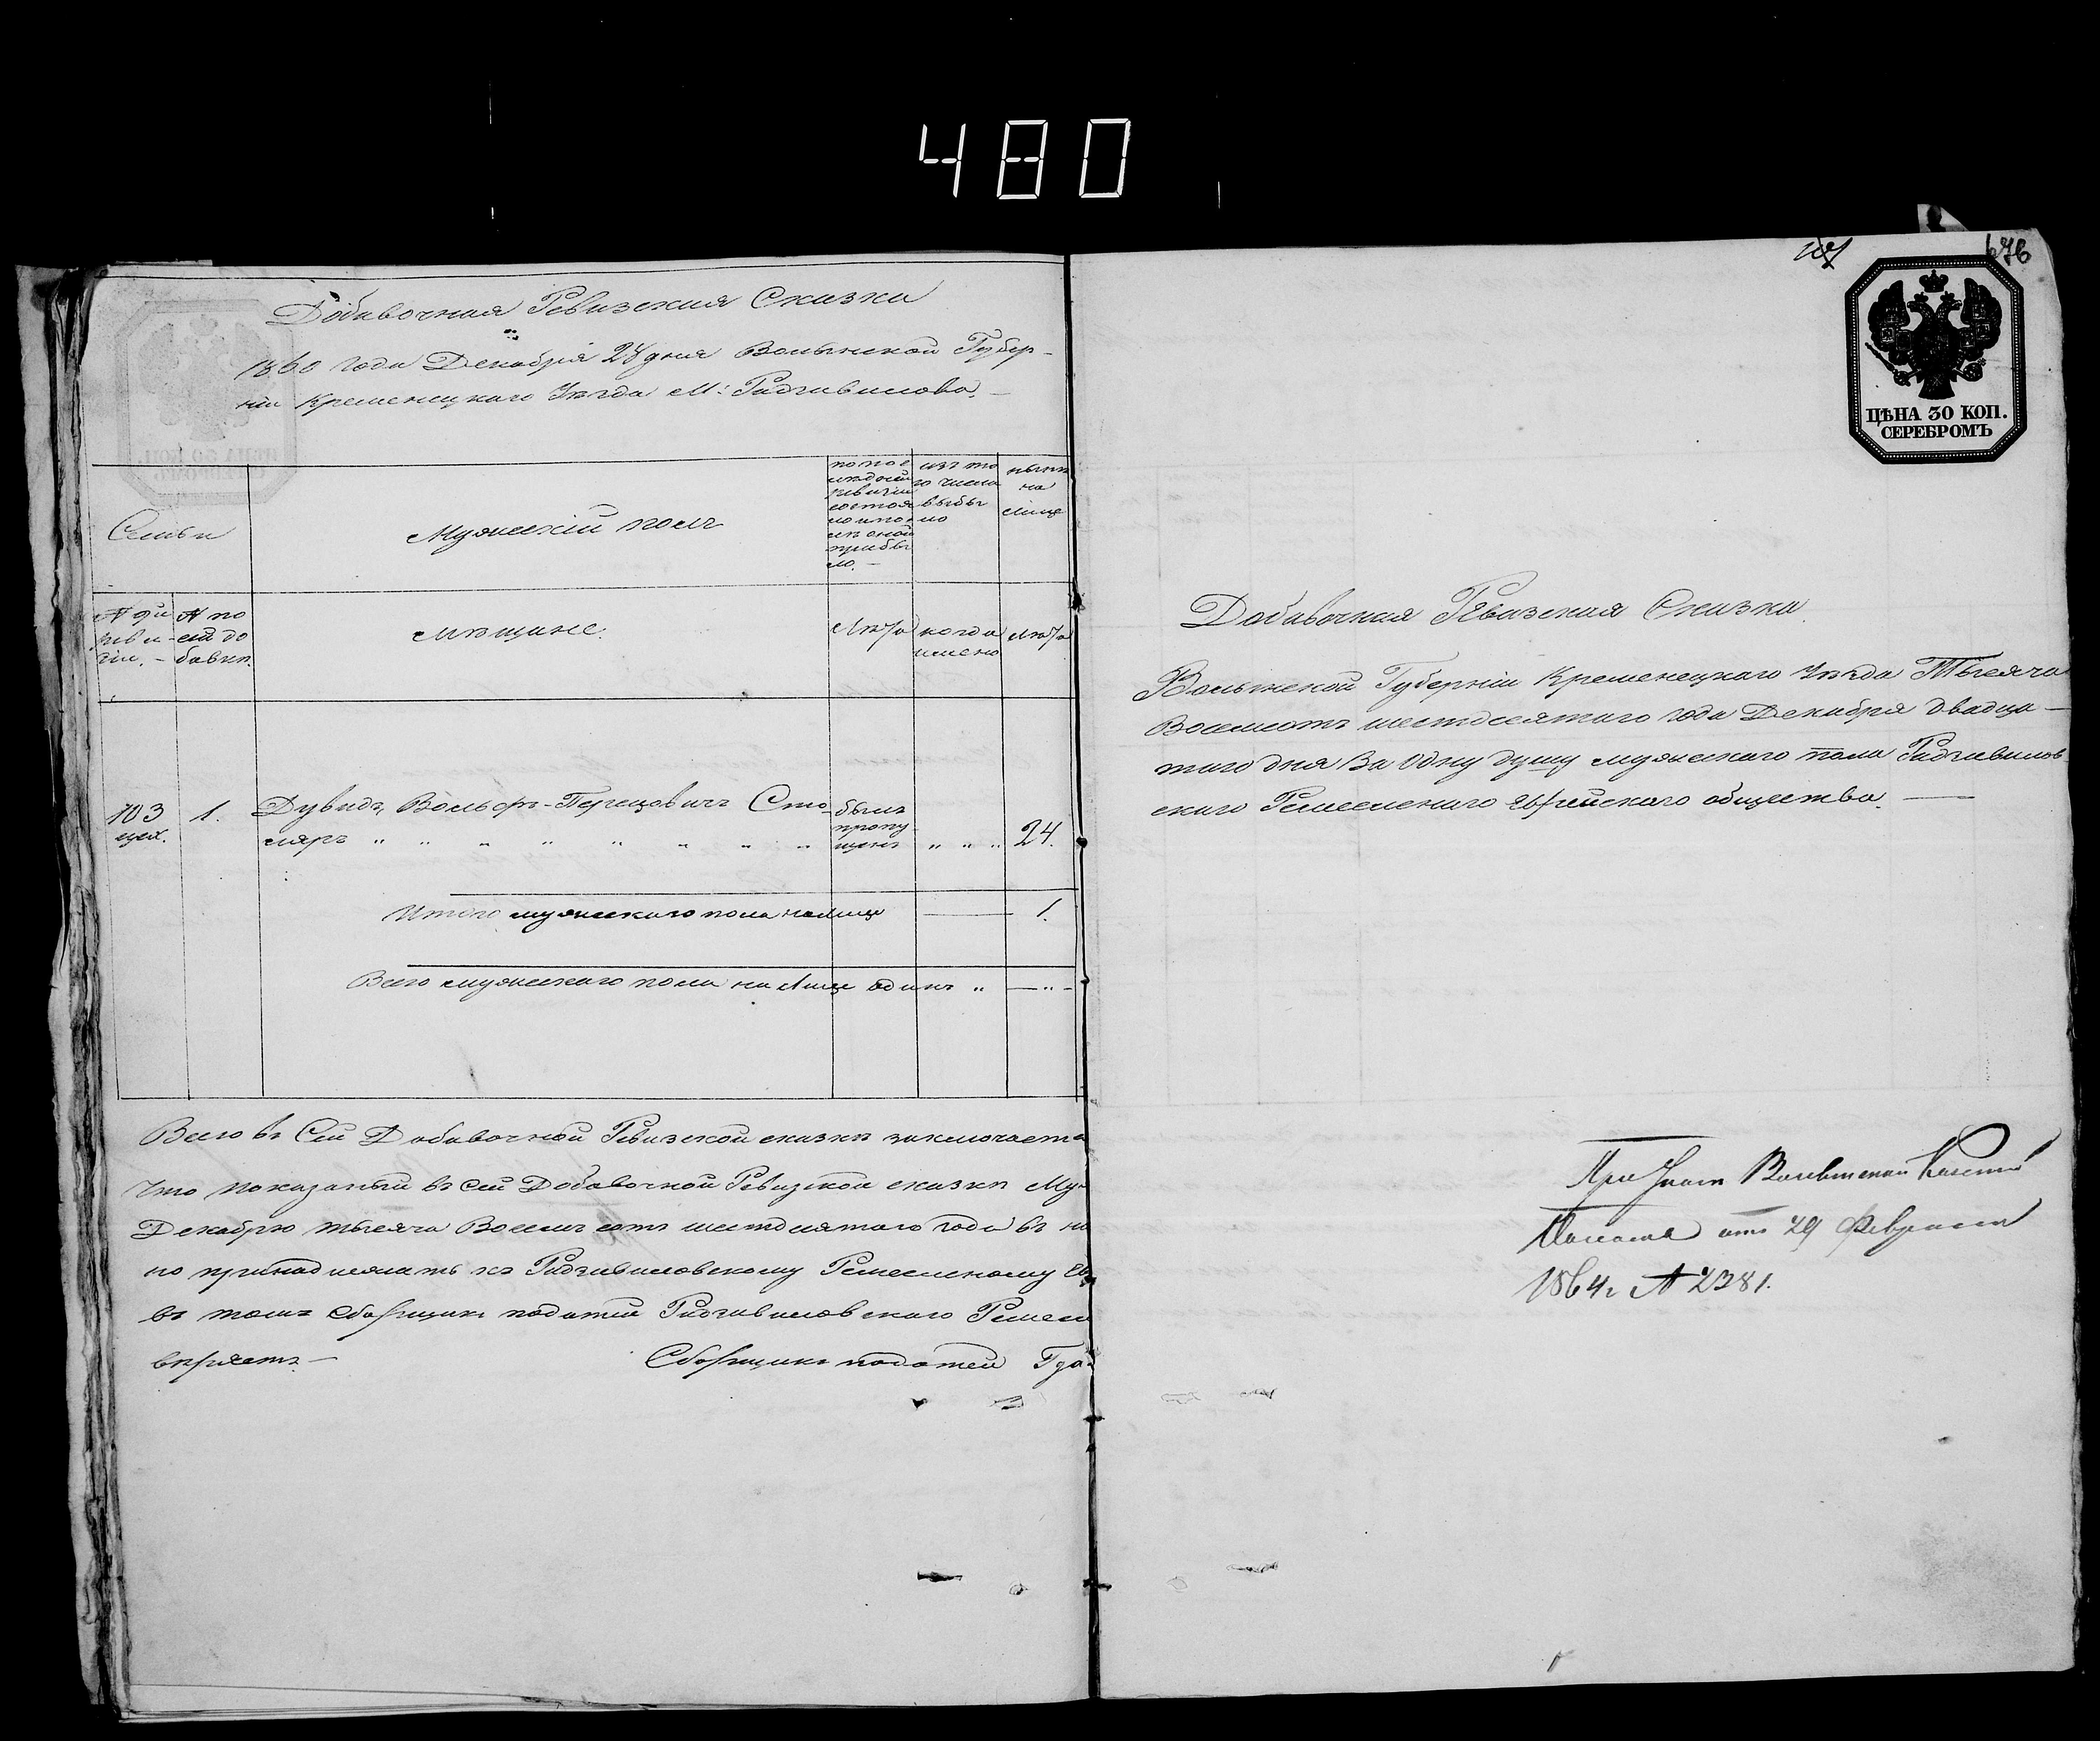 480
Добавочная Ревизская Сказка
1860 года Декабря 20 дня Волынской Губер-
ніи Кременецкаго Уѣзда М: Радзивилова.
Семьи
Мужескій полъ
по пос
лѣдней
ревизіи
состоя
ло и по
слѣ оной
прибы
ло.
изъ то
го числа
выбы
ло
нынѣ
на
лице
№ 9й
реви
зіи.
№ по
сей до
бавкѣ.
мѣщане.
Лѣта
когда
имено
Лѣта
103
цех.
1.
Дувидъ Вольфъ-Перецовичъ Сто
ляръ
былъ
пропу
щенъ
24.
Итого мужескаго пола налице 1.
Всего мужескаго пола на лице одинъ
Всего въ Сей Добавочной Ревизской сказкѣ заключаетс
что показаный въ сей Добавочной Ревизской сказкѣ Му
Декабрю тысяча Восемь сотъ шестдсятаго года въ на
но принадлежатъ къ Радзивиловскому Ремесленому Ев
въ томъ Сборщикъ податей Радзивиловскаго Ремесл
вѣряетъ.
Сборщикъ податей
676
ЦѢНА 30 КОП.
СЕРЕБРОМЪ
Добавочная Ревизская Сказка.
Волынской Губерніи Кременецкаго Уѣзда Тысяча
Восемсотъ шестдесятаго года Декабря двадца-
таго дня За Одну душу мужескаго пола Радзивилов
скаго Ремесленаго Еврейскаго общества.
При Указѣ Волынской Казенной
Палаты отъ 29 Февраля
1864 г № 2381.